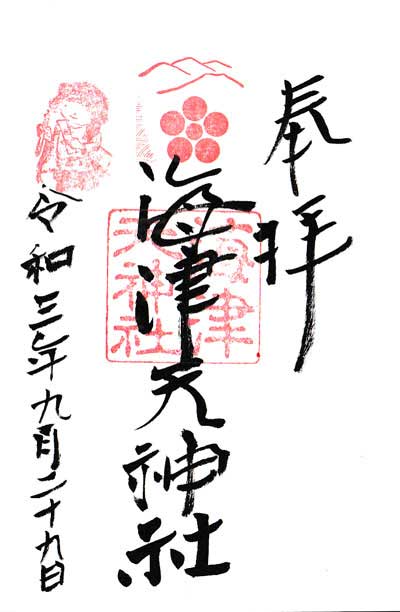 奉拝
海津天神社
海津天神社
令和三年九月二十九日